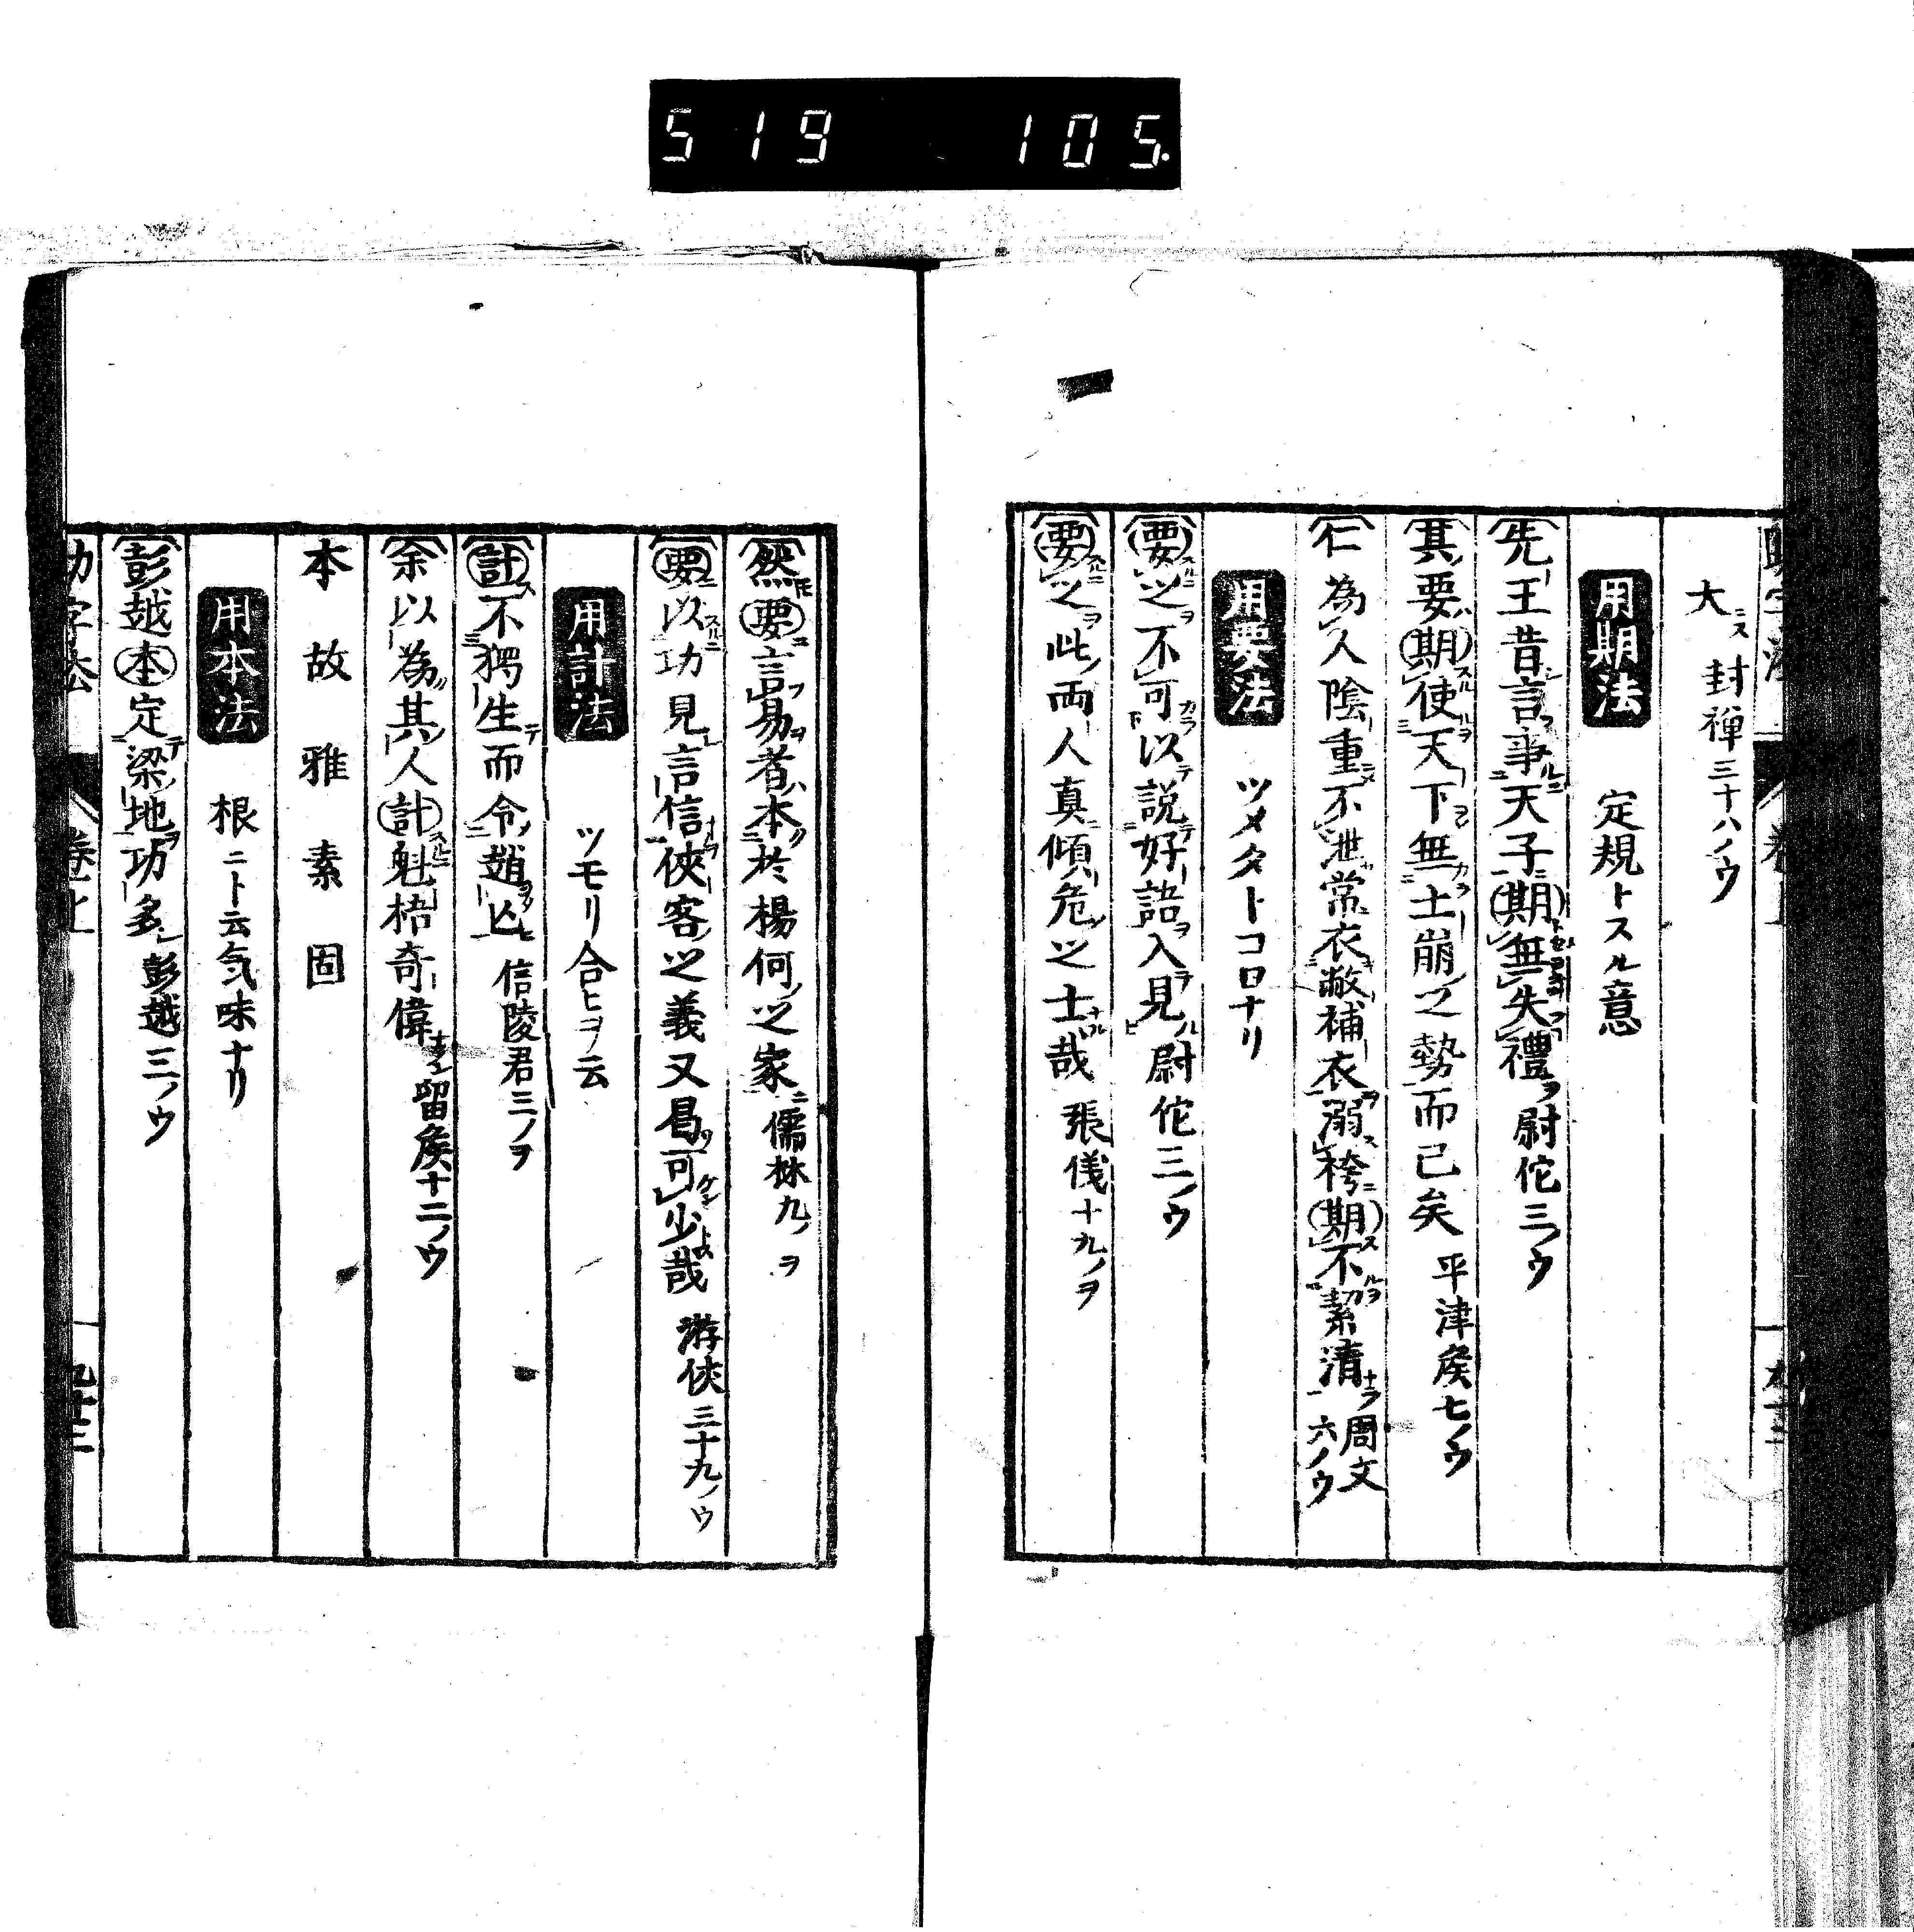 519 105.
大ニス 封禅三十八ノウ
用期法 定規トスル意
先王昔言事天子期無失禮 尉佗三ノウ
其要期使天下無土崩之勢而已矣 平津矦七ノウ
仁為人陰重不泄常衣敝補衣溺袴期不絜清 周文六ノウ
用要法 ツメタトコロナリ
要之不可以説好語入見 尉佗三ノウ
要之此両人真傾危之士哉 張儀十九ノヲ
然要言易者本於楊何之家 儒林九ノヲ
要以功見言信俠客之義又曷可少哉 游俠三十九ノウ
用計法 ツモリ合ヒヲ云
計不獨生而令趙亡 信陵君三ノヲ
余以為其人計魁梧奇偉 留矦十二ノウ
本 故 雅 素 固
用本法 根ニト云気味ナリ
彭越本定梁地功多 彭越三ノウ
助字法 卷上 九十三